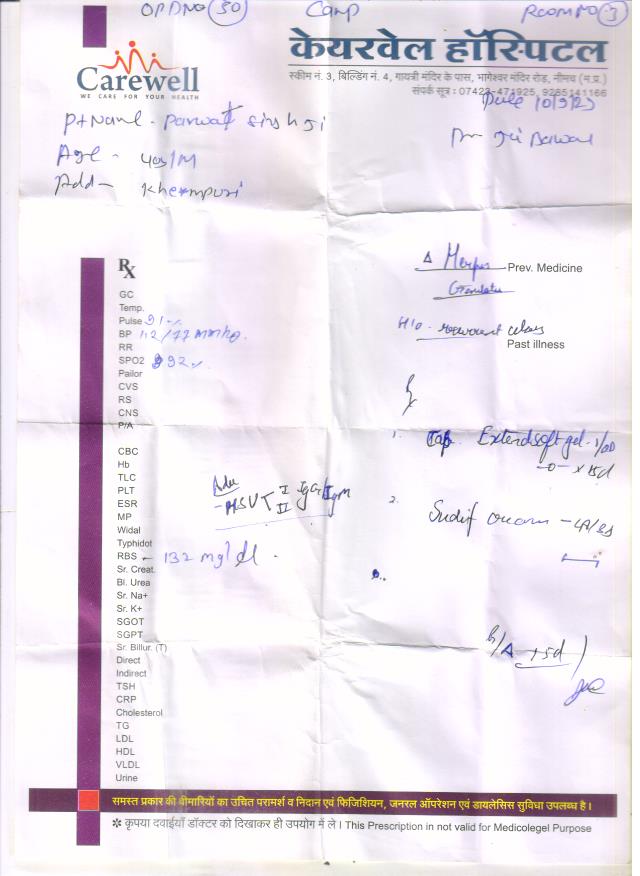 OPD NO (30) Camp ROOM NO - 3
केयरवेल हॉस्पिटल
Carewell
WE CARE FOR YOUR HEALTH
स्कीम नं. 3, बिल्डिंग नं. 4, गायत्री मंदिर के पास, भागेश्वर मंदिर रोड, नीमच (म.प्र.)
संपर्क सूत्र : 07423-471925, 9285141166
Date 10/9/23
Pt Name - Parwat Singh Ji
Age - 40y/M
Add - Khermpuri
Rx
Δ Herpes
Prev. Medicine
Genitalis
GC
Temp.
Pulse 91
H/O - recurrent ulcers
BP 112/77 mmhg.
Past illness
RR
SPO2 92
Pallor
CVS
RS
CNS
P/A
1. Cap. Extend softgel - 1/OD
x 15d
CBC
Hb
TLC
PLT
Adv
- HSV I II IgG IgM
ESR
2. cream - LA/BD
MP
Widal
Typhidot
RBS - 132 mg/dl.
Sr. Creat.
Bl. Urea
Sr. Na+
Sr. K+
SGOT
SGPT
Sr. Billur. (T)
15d
Direct
Indirect
TSH
CRP
Cholesterol
TG
LDL
HDL
VLDL
Urine
समस्त प्रकार की बीमारियों का उचित परामर्श व निदान एवं फिजिशियन, जनरल ऑपरेशन एवं डायलेसिस सुविधा उपलब्ध है।
✻ कृपया दवाईयाँ डॉक्टर को दिखाकर ही उपयोग में ले। This Prescription in not valid for Medicolegel Purpose